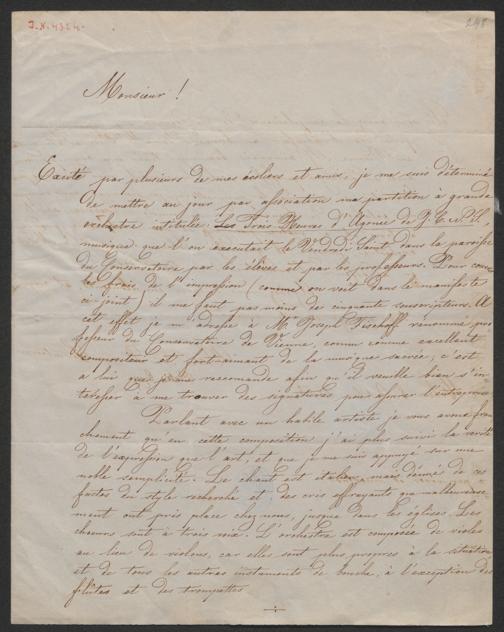 I.N. 4324.
248
Monsieur !
Excité par plusieurs de mes écoliers et amis, je me suis déterminé
de mettre au jour par association ma partition à grande
orchestre intitulée: Les Trois Heures d'Agonie de J. C. N. S.,
musique que l'on executait le Vendredi Saint dans la paroisse
du Conservatoire par les élèves et par les professeurs. Pour
les frais de l'impression (comme on voit dans le manifeste
ci-joint) il me faut pas moins de cinquante souscripteurs. A
cet effet je m'adresse à Mr Joseph Fischoff renommé pro
fesseur du Conservatoire de Vienne, comm comme excellent
compositeur et fort-aimant de la musique sacrée, c'est
a lui que je me raccomande afin qu'il veuille bien s'in
teresser à me trouver des signatures pour assurer l'entreprise.
Parlant avec un habile artiste, je vous avoue fran
chement qu'en cette composition j'ai plus suivi la verité
de l'expression que l'art, et que je me suis appuyé sur une
noble semplicité. Le chant est italien, mais dénué de ces
fastes du style recherché et des cris effrayants que malheureuse
ment ont pris place chez nous, jusque dans les églises. Les
choeurs sont à trois voix. L'orchestre est composée de violes
au lieu de violons, car elles sont plus propres à la situation
et de tous les autres instaments de bouche, à l'exception des
flûtes et des trompettes